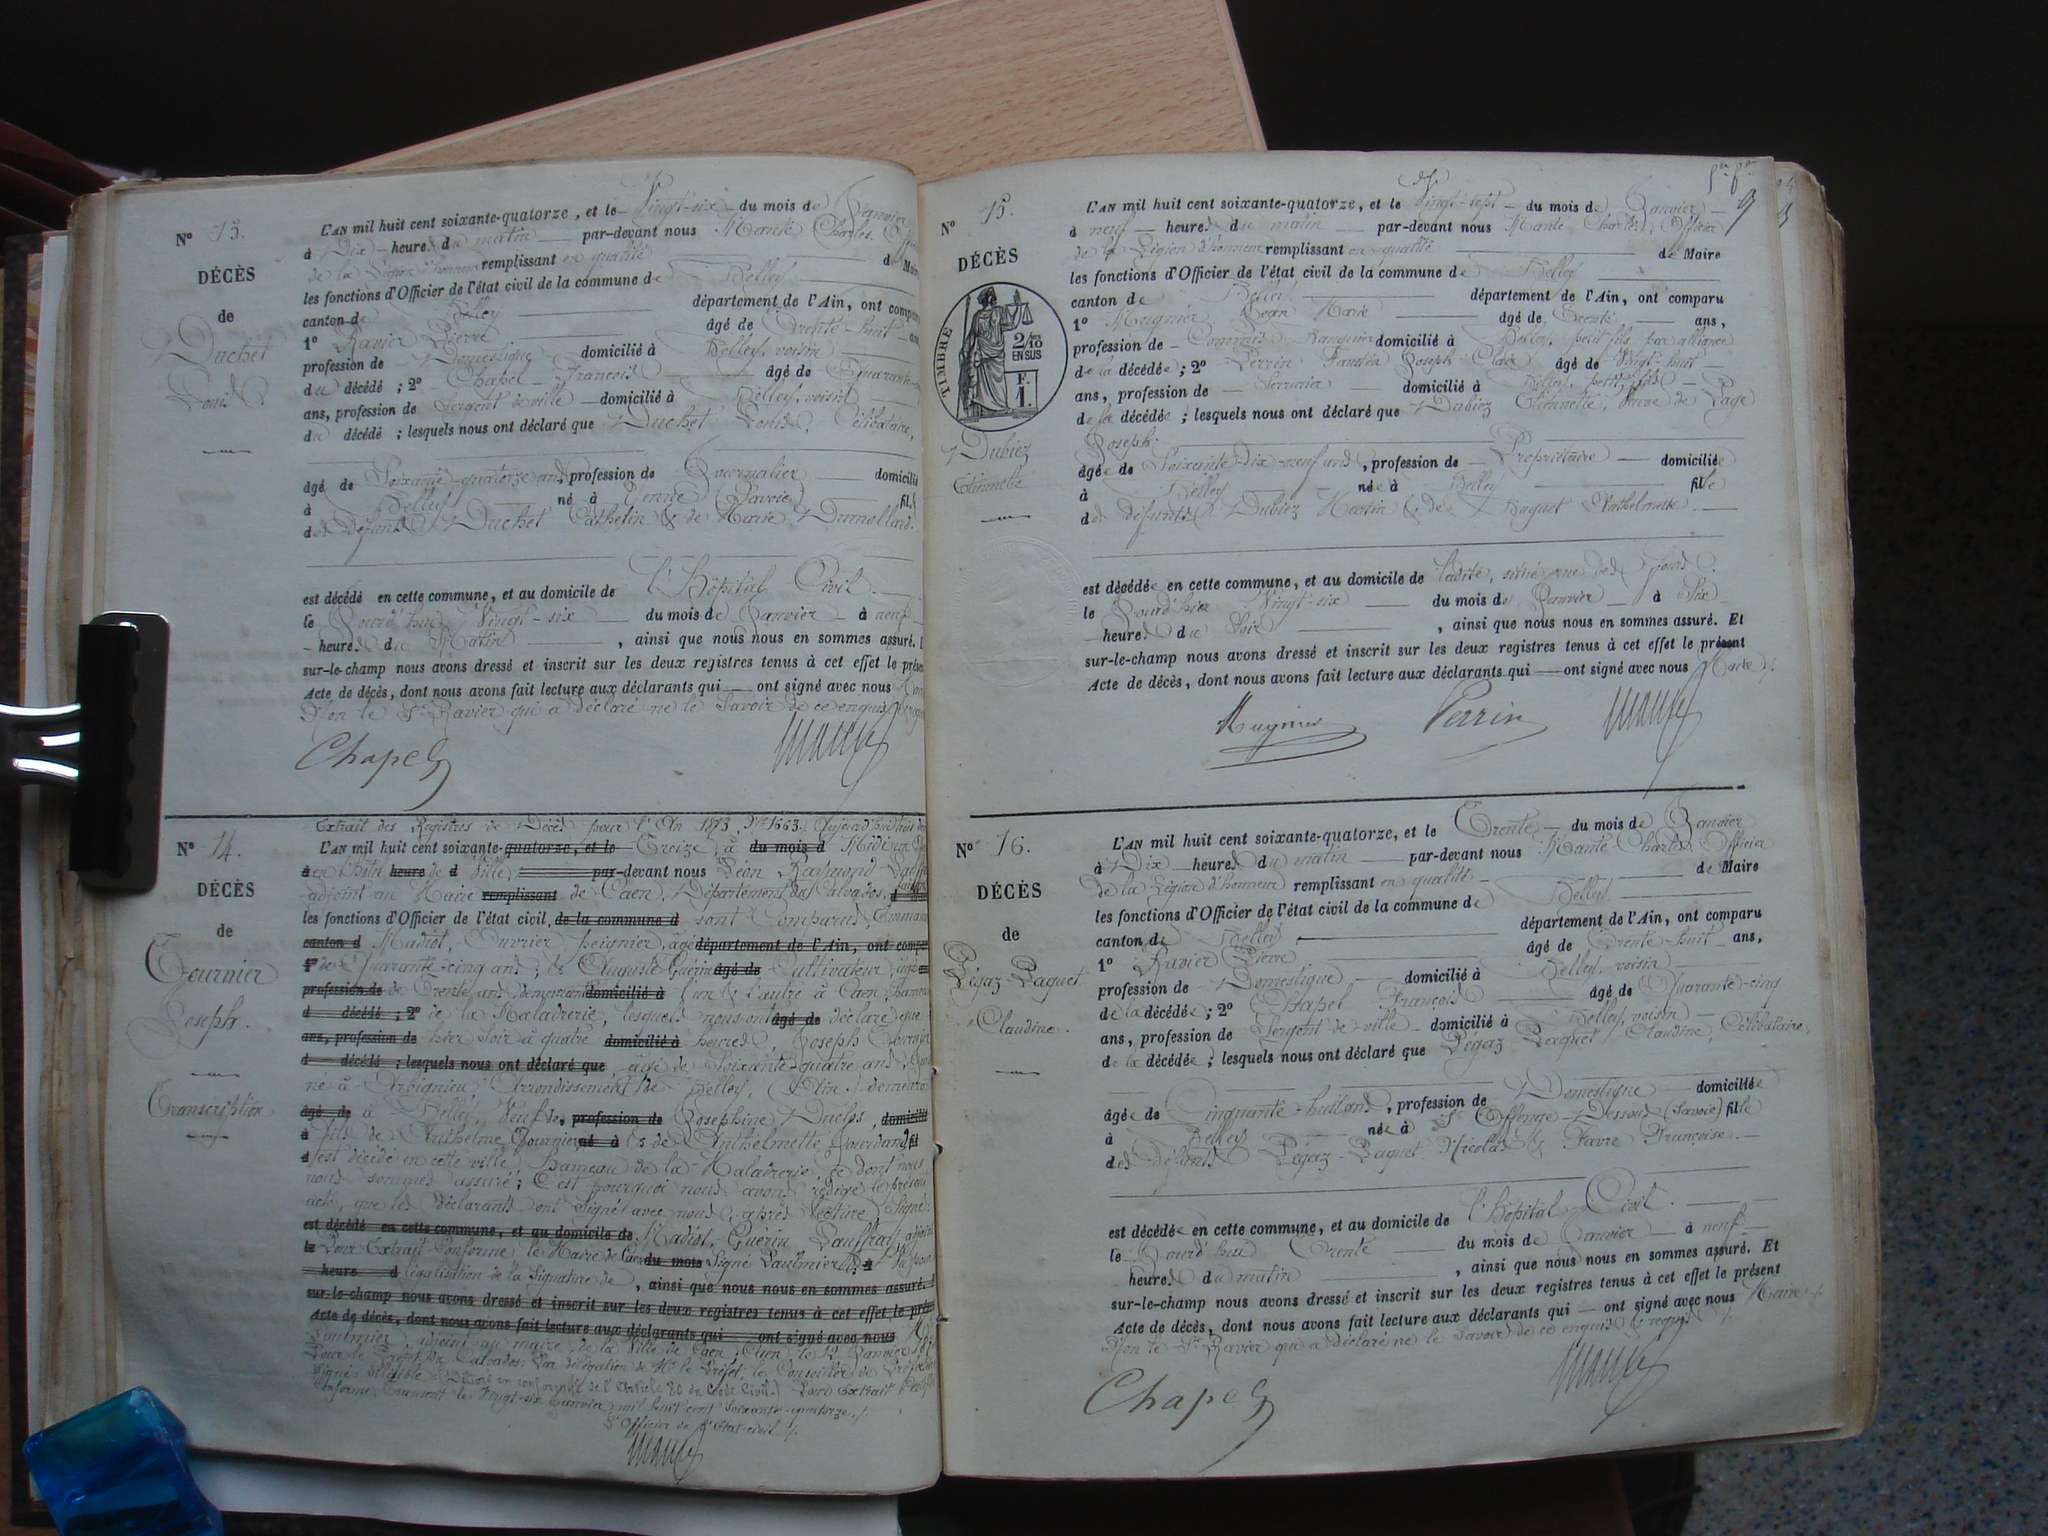 N° 13.
DÉCÈS
de
Duchet
Louis.
L'AN mil huit cent soixante-quatorze, et le Vingt-six du mois de Janvier
à Dix heures du matin par-devant nous Charles
de la Légion d'honneur remplissant en qualité de Maire
les fonctions d'Officier de l'état civil de la commune de Belley
canton de Belley département de l'Ain, ont comparu
1° Ravier Pierre âgé de Trente huit ans
profession de Domestique domicilié à Belley, voisin
du décédé ; 2° Chapel François âgé de Quarante
ans, profession de Sergent de ville domicilié à Belley, voisin
du décédé ; lesquels nous ont déclaré que Duchet Louis, Célibataire,
âgé de Soixante-quatorze ans, profession de Journalier domicilié
à Belley né à Yenne (Savoie) fils
des défunts Duchet Cathelin & de Marie
est décédé en cette commune, et au domicile de l'Hôpital Civil.
le Jourd'hui Vingt-six du mois de Janvier à neuf
heures du Matin, ainsi que nous nous en sommes assuré.
sur-le-champ nous avons dressé et inscrit sur les deux registres tenus à cet effet le
Acte de décès, dont nous avons fait lecture aux déclarants qui ont signé avec nous
Non le Sr Ravier qui a déclaré ne le Savoir de ce enquis
Chapel
N° 14.
DÉCÈS
de
Tournier
Joseph.
Transcription
Extrait des Registres de Décès pour l'An 1873, N° 1663. Aujourd'hui
L'AN mil huit cent soixante-quatorze, et le Treize, à du mois d Midi
en l'hôtel heure de d Ville par-devant nous Léon Raymond
adjoint au Maire remplissant de Caen, Département du Calvados,
les fonctions d'Officier de l'état civil, de la commune d sont Comparus,
canton d Madiot, Ouvrier peignier, âgé département de l'Ain, ont
1° de Quarante-cinq ans ; & Auguste Guérin âgé de Cultivateur, âgé
profession de de Trente ans demeurant domicilié à l'un & l'autre à Caen,
d décédé ; 2° de la Maladrerie, lesquels nous ont âgé de déclaré que
ans, profession de hier soir à quatre domicilié à heures, Joseph
d décédé ; lesquels nous ont déclaré que âgé de Soixante-quatre ans,
né à Arbignieu, Arrondissement de Belley, (Ain) demeurant
âgé de à Belley, Veuf de profession de Josephine Duclos, domicilié
à fils de Anthelme Tournier né à & de Anthelmette Jourdan,
est décédé en cette ville, hameau de la Maladrerie, ce dont nous
nous sommes assuré ; C'est pourquoi nous avons rédigé le présent
acte, que les déclarants ont Signé avec nous après lecture, Signé:
est décédé en cette commune, et au domicile de Madiot, Guérin,
le Pour Extrait Conforme le Maire de Caen du mois Signé Paulmier
heure d légalisation de la Signature de, ainsi que nous nous en sommes assuré.
sur-le-champ nous avons dressé et inscrit sur les deux registres tenus à cet effet le
Acte de décès, dont nous avons fait lecture aux déclarants qui ont signé avec nous
Paulmier, adjoint au maire de la Ville de Caen, Caen, le 12 Janvier
Pour le Préfet du Calvados: Par délégation de Mr le Préfet, le Conseiller de
Signé: illisible en conformité de l'Article 80 du Code Civil.) Pour Extrait
Conforme, le Vingt-six Janvier mil huit cent soixante-quatorze./.
L'Officier de l'État-civil./.
N° 15.
DÉCÈS
TIMBRE
2/10 EN SUS
F. 1.
Dubiez
Etiennette
9
L'AN mil huit cent soixante-quatorze, et le Vingt-sept du mois de Janvier
à neuf heures du matin par-devant nous Charles, Officier
de la Légion d'honneur remplissant en qualité de Maire
les fonctions d'Officier de l'état civil de la commune de Belley
canton de Belley département de l'Ain, ont comparu
1° Mugnier Jean Marie âgé de Trente ans,
profession de Commis Banquier domicilié à Belley, petit fils par alliance
de la décédée ; 2° Perrin Joseph âgé de Vingt-huit
ans, profession de Serrurier domicilié à Belley, petit fils
de la décédée ; lesquels nous ont déclaré que Dubiez Etiennette, Veuve de Page
Joseph.
âgée de Soixante-dix-neuf ans, profession de Propriétaire domiciliée
à Belley née à Belley fille
des défunts Dubiez Martin & de
est décédée en cette commune, et au domicile de ladite, situé rue des
le Jour d'hier Vingt-six du mois de Janvier à Six
heures du Soir, ainsi que nous nous en sommes assuré. Et
sur-le-champ nous avons dressé et inscrit sur les deux registres tenus à cet effet le présent
Acte de décès, dont nous avons fait lecture aux déclarants qui ont signé avec nous Maire./.
Mugnier Perrin
N° 16.
DÉCÈS
de
Pégaz-Paquet
Claudine.
L'AN mil huit cent soixante-quatorze, et le Trente du mois de Janvier
à Dix heures du matin par-devant nous Charles, Officier
de la Légion d'honneur remplissant en qualité de Maire
les fonctions d'Officier de l'état civil de la commune de Belley
canton de Belley département de l'Ain, ont comparu
1° Ravier Pierre âgé de Trente-huit ans,
profession de Domestique domicilié à Belley, voisin
de la décédée ; 2° Chapel François âgé de Quarante-cinq
ans, profession de Sergent de ville domicilié à Belley, voisin
de la décédée ; lesquels nous ont déclaré que Pégaz Paquet Claudine, Célibataire,
âgée de Cinquante-huit ans, profession de Domestique domiciliée
à Belley née à St Offenge-Dessous (Savoie) fille
des défunts Pégaz-Paquet Nicolas & Favre Françoise.
est décédée en cette commune, et au domicile de l'Hôpital Civil.
le Jourd'hui Trente du mois de Janvier à neuf
heures du matin, ainsi que nous nous en sommes assuré. Et
sur-le-champ nous avons dressé et inscrit sur les deux registres tenus à cet effet le présent
Acte de décès, dont nous avons fait lecture aux déclarants qui ont signé avec nous Maire./.
Non le Sr Ravier qui a déclaré ne le Savoir de ce enquis & requis./.
Chapel